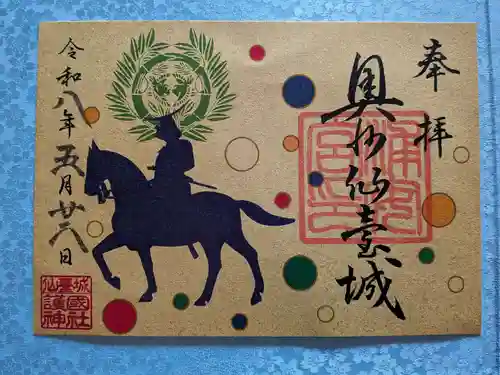 奉拝
奥州仙臺城
令和八年五月廿八日
仙臺城
護國
神社